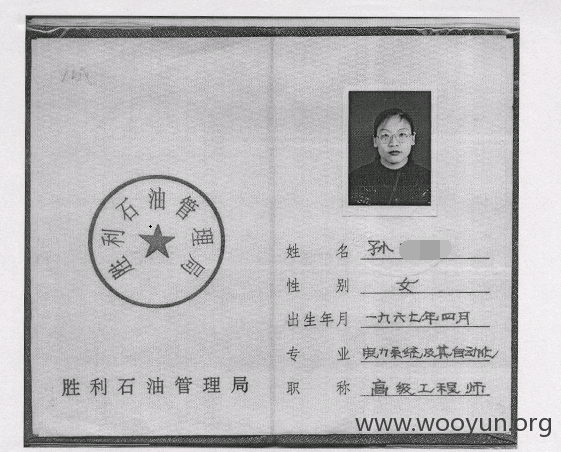 胜利石油管理局
胜利石油管理局
姓 名 孙
性 别 女
出生年月 一九六七年四月
专 业 电力系统及其自动化
职 称 高级工程师
www.wooyun.org